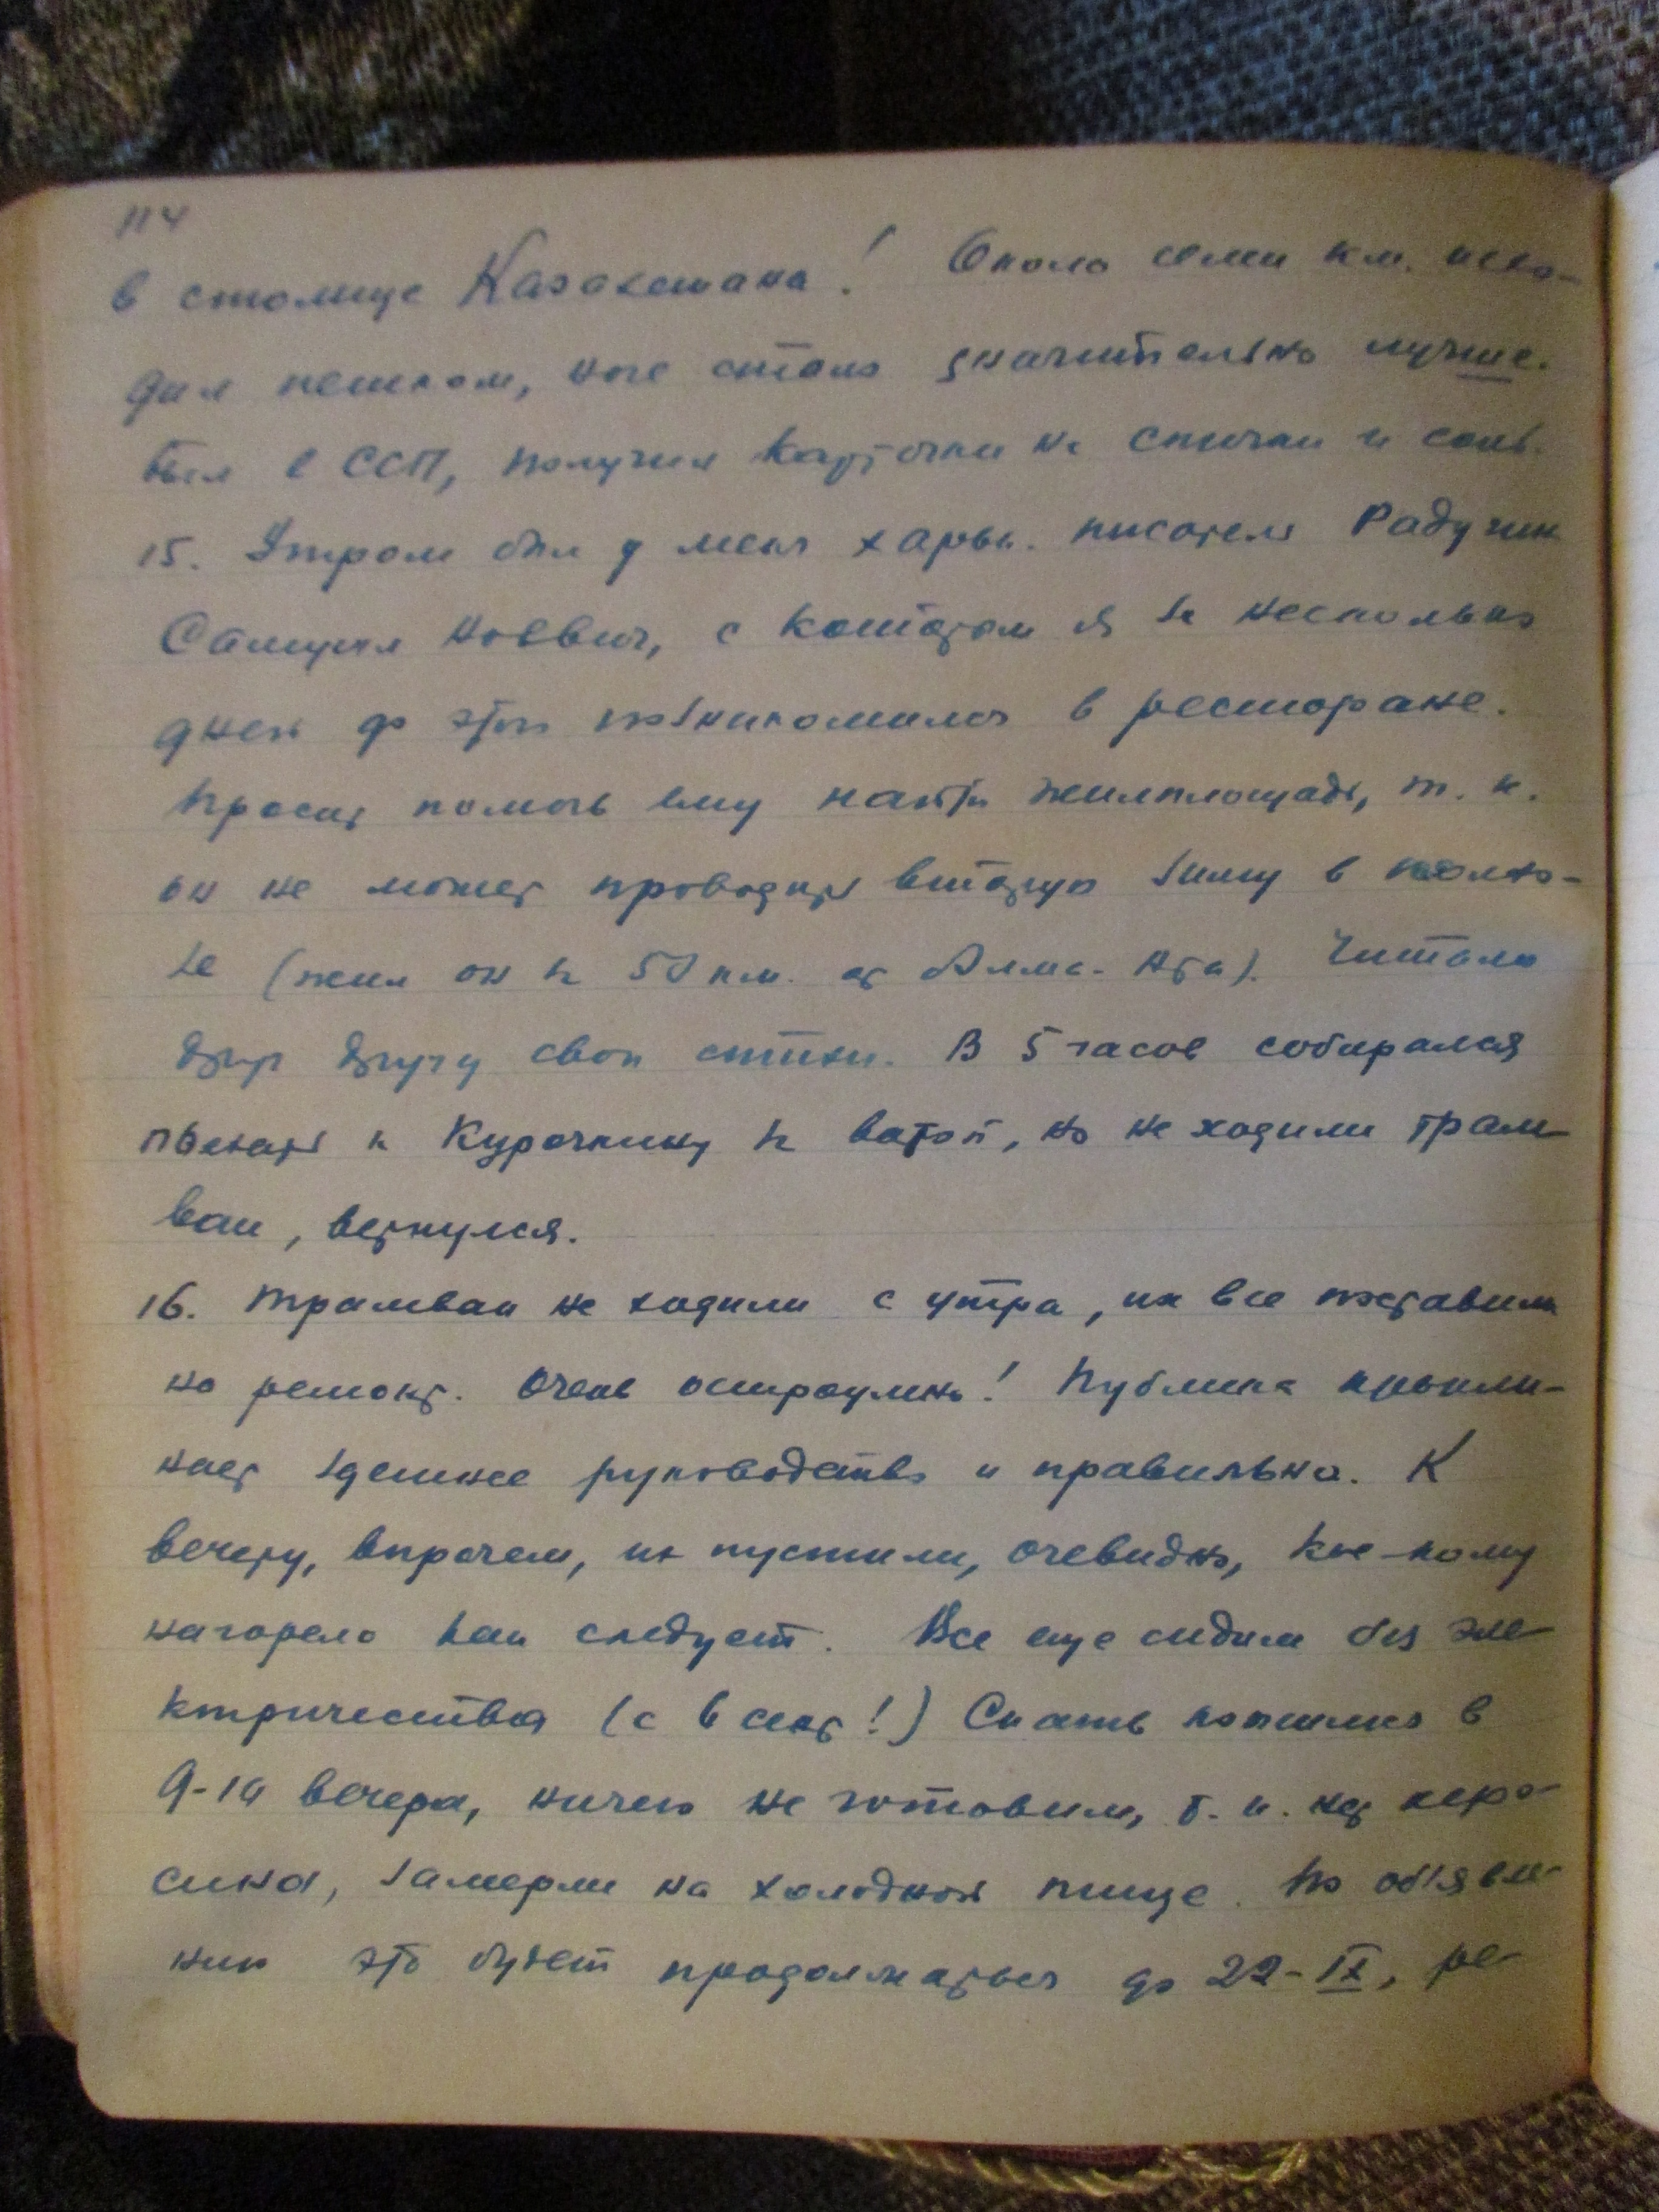 114
в столице Казахстана! Около семи км. исхо-
дил пешком, ноге стало значительно лучше.
Был в ССП, получил карточки на спички и соль.
15. Утром был у меня харьк. писатель Радугин
Самуил Ноевич, с которым я за несколько
дней до этого познакомился в ресторане.
Просит помочь ему найти жилплощадь, т. к.
он не может проводить вторую зиму в колхо-
зе (жил он за 50 км. от Алма-Ата). Читали
друг другу свои стихи. В 5 часов собирался
поехать к Курочкину за ватой, но не ходили трам-
ваи, вернулся.
16. Трамваи не ходили с утра, их все поставили
на ремонт. Очень остроумно! Публика прокли-
нает здешнее руководство и правильно. К
вечеру, впрочем, их пустили, очевидно, кое-кому
нагорело как следует. Все еще сидим без эле-
ктричества (с 6 сент!) Спать ложимся в
9-10 вечера, ничего не готовим, т. к. нет керо-
сина, замерли на холодной пище. По объявле-
нию это будет продолжаться до 22-IX, ре-